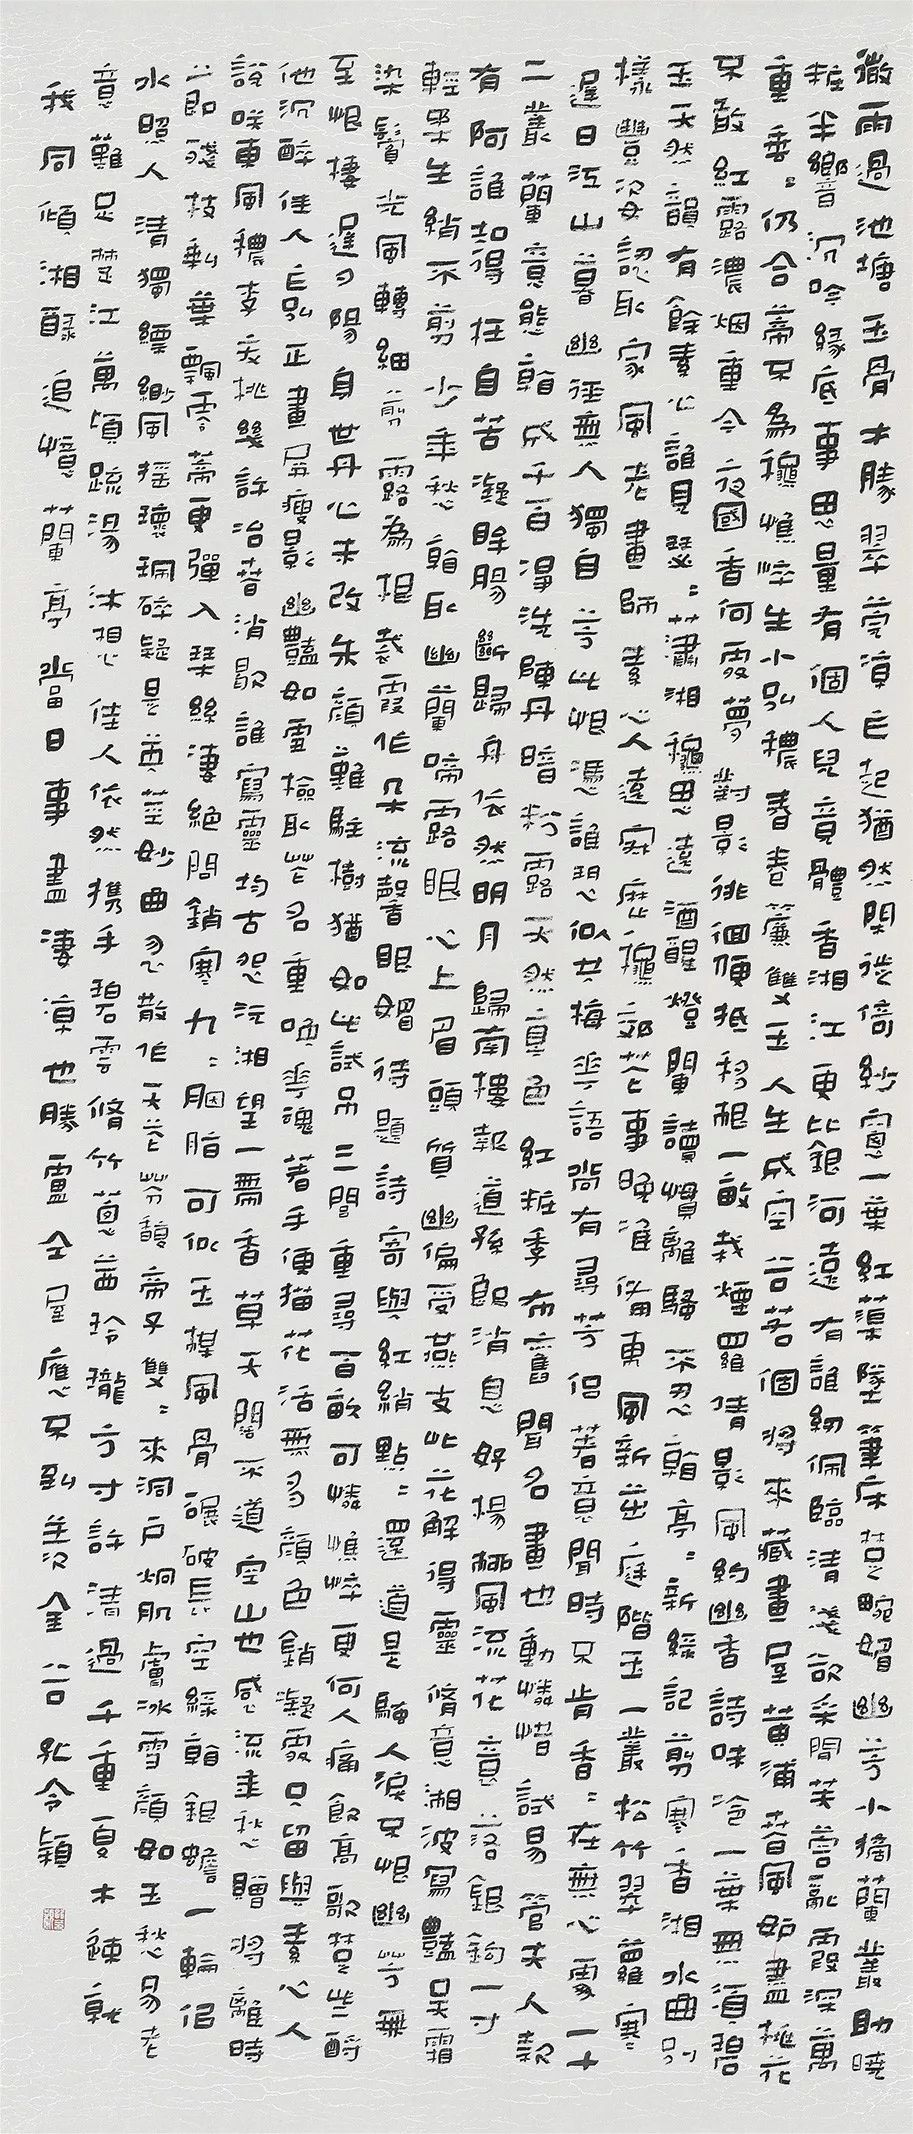 微雨過池塘玉骨才勝翠葊涼乍起猶然閒徙倚紗窗一葉紅蕖墜筆床楚畹媚幽芳小摘蘭叢助曉
粧半鄉音沉吟緣底事思量有個人兒竟體香湘江更比銀河遠有誰紉佩臨清淺欲采閒芙蓉亂霞深萬
重垂垂仍合蒂只為穐憔悴生小弘穠春卷簾雙玉人生成空谷若個將來藏畫屋黃浦昔風妒盡桃花
只敢紅露濃烟重今夜國香何處夢對影徘徊便抵移根一畝栽煙羅倩影風約幽香詩味冷一葉無須碧
玉天然韻有餘素心誰見瑟瑟蕭湘穐思遠酒醒燈闌讀慣離騷不忍翦亭亭新綠記剪寒香湘水曲別
樣豐姿認取家風老畫師素心人遠寂歷穐郊花事晚準備東風新茁庭階玉一叢松竹翠蘿寒
遲日江山暮幽徑無人獨自芳此恨憑誰訴似共梅花語尚有尋芳侶著意聞時只肯香香在無心處一十
二叢蘭意態翰成千百淨洗陳丹暗粉露天然真色紅粧季布舊聞名畫也動憐惜試易管夫人款
有阿誰知得枉自苦凝眸腸斷歸舟依然明月歸南樓報道孫郎消息好楊柳風流花意落銀鉤一寸
輕柔生綃不剪少年愁翰取幽蘭啼露眼心上眉頭質幽偏受燕支此花解得靈脩意湘波寫豔吳霜
染鬢光風轉細翦露為根裁霞作朵流馨眼媚待題詩寄與紅綃點點還道是騷人淚只恨幽芳無
至恨悽遲夕陽身世丹心未改朱顏難駐樹猶如此試吊三閭重尋百畝可憐憔悴更何人痛飲高歌楚些酹
他沉醉佳人乍別正畫屏瘦影幽豔如雪撿取花名重喚花魂著手便描花活無多顏色銷凝處只留與素心人
說咲東風穠李夭桃幾許冶春消歇誰寫靈均古怨沅湘望一霎香草天闊不道空山也感流年愁贈將離時
節殘枝剩葉飄零蒂更彈入琴絲淒絕問銷寒九九胭脂可似玉樨風骨碾破長空綠翰銀蟾一輪侶
水照人清獨縹緲風搖瓌珮碎疑是英莖妙曲忽散作天花芬馥帝子雙雙來洞戶炯肌膚冰雪顏如玉愁易老
意難足楚江萬頃疏湯沐想佳人依然攜手碧雲脩竹蔥蒨玲瓏方寸許清過千重夏木鍊就
我同傾湘醁追憶蘭亭當日事盡淒涼也勝盧仝屋應只到羊次金谷孔令穎